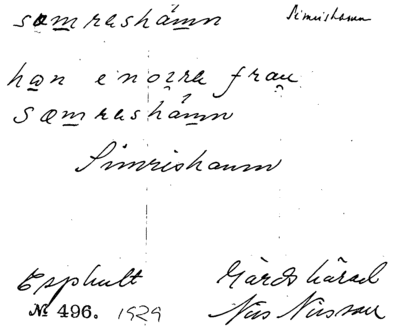 sọmrashámn Simrishamn
han enorra frạu
sæmrashámn
Simrishamn
Esphult Gärds härad
№ 496. 1929 Nils Nilsson